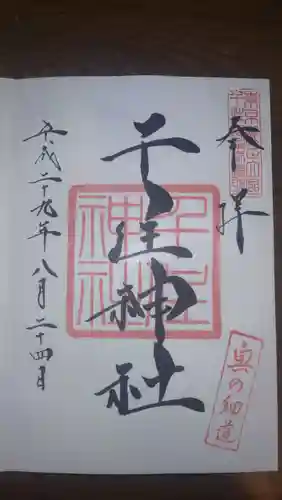 奉拝
千住神社
千住
神社
奥の細道
平成二十九年八月二十四日